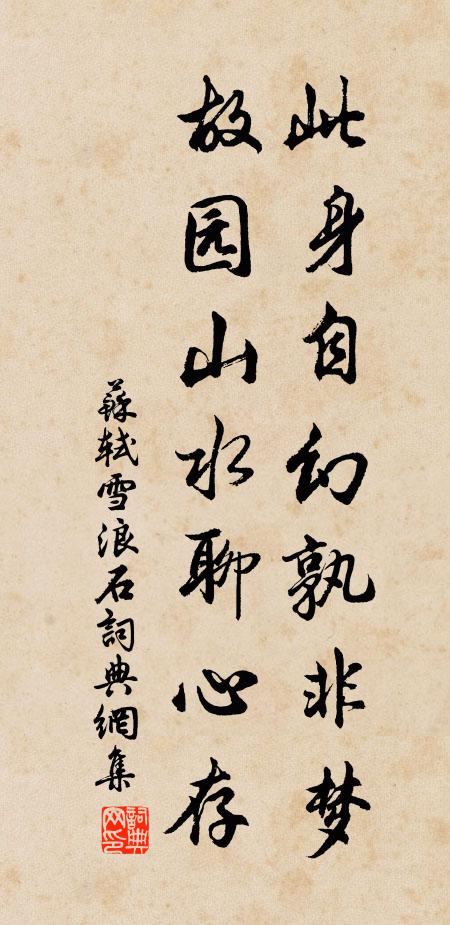 此身自幻孰非梦
故园山水聊心存
蘇軾雪浪石詞典網集
詞典网印